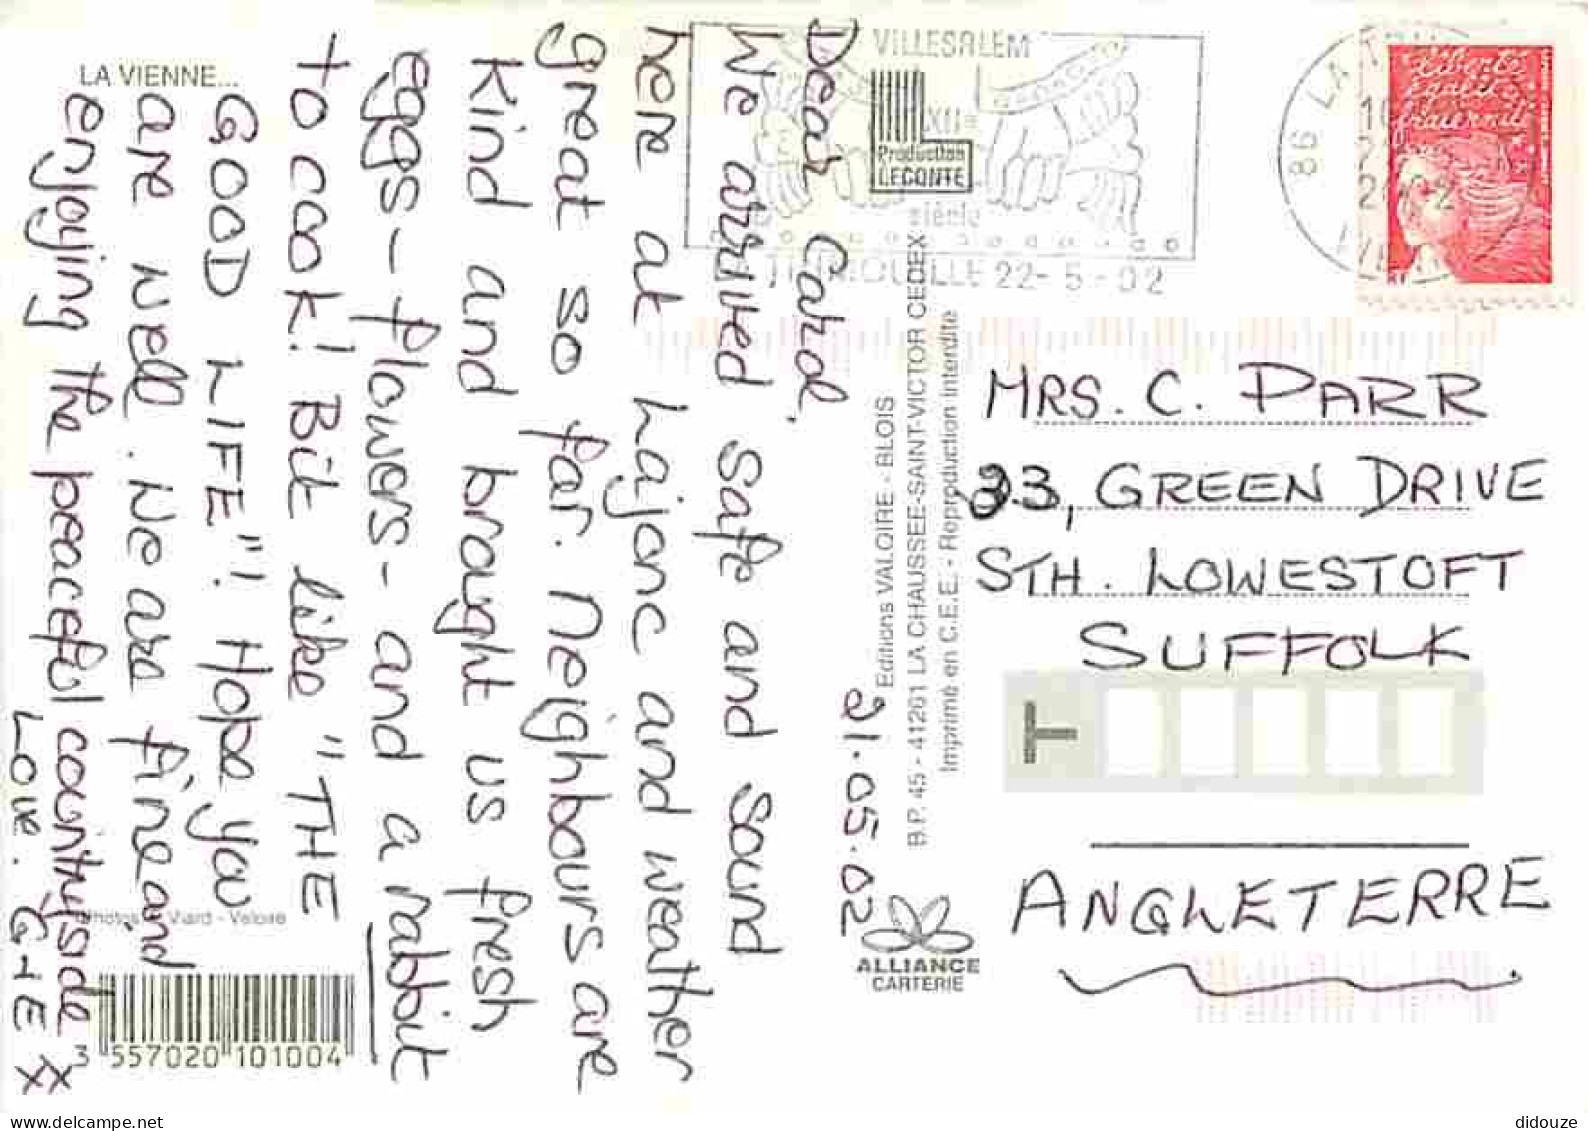 LA VIENNE...
Dear Carol,
We arrived safe and sound
here at Lajonc and weather
great so far. Neighbours are
kind and brought us fresh
eggs - flowers - and a rabbit
to cook! Bit like "THE
GOOD LIFE"! Hope you
are well. We are fine and
enjoying the peaceful countryside
Love. G+E xx
21.05.02
Photos Viard - Valoire
3 557020 101004
Editions VALOIRE - BLOIS
B.P. 45 - 41261 LA CHAUSSEE-SAINT-VICTOR CEDEX
Imprimé en C.E.E. - Reproduction interdite
Production
LECONTE
ALLIANCE
CARTERIE
VILLESALEM
XIIe
siècle
22-5-02
86
Liberté
égalité
fraternité
MRS. C. PARR
33, GREEN DRIVE
STH. LOWESTOFT
SUFFOLK
T
ANGLETERRE
delcampe.net
didouze